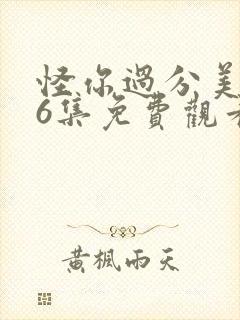 怪你過分美
6集免費觀看
黃楓雨天